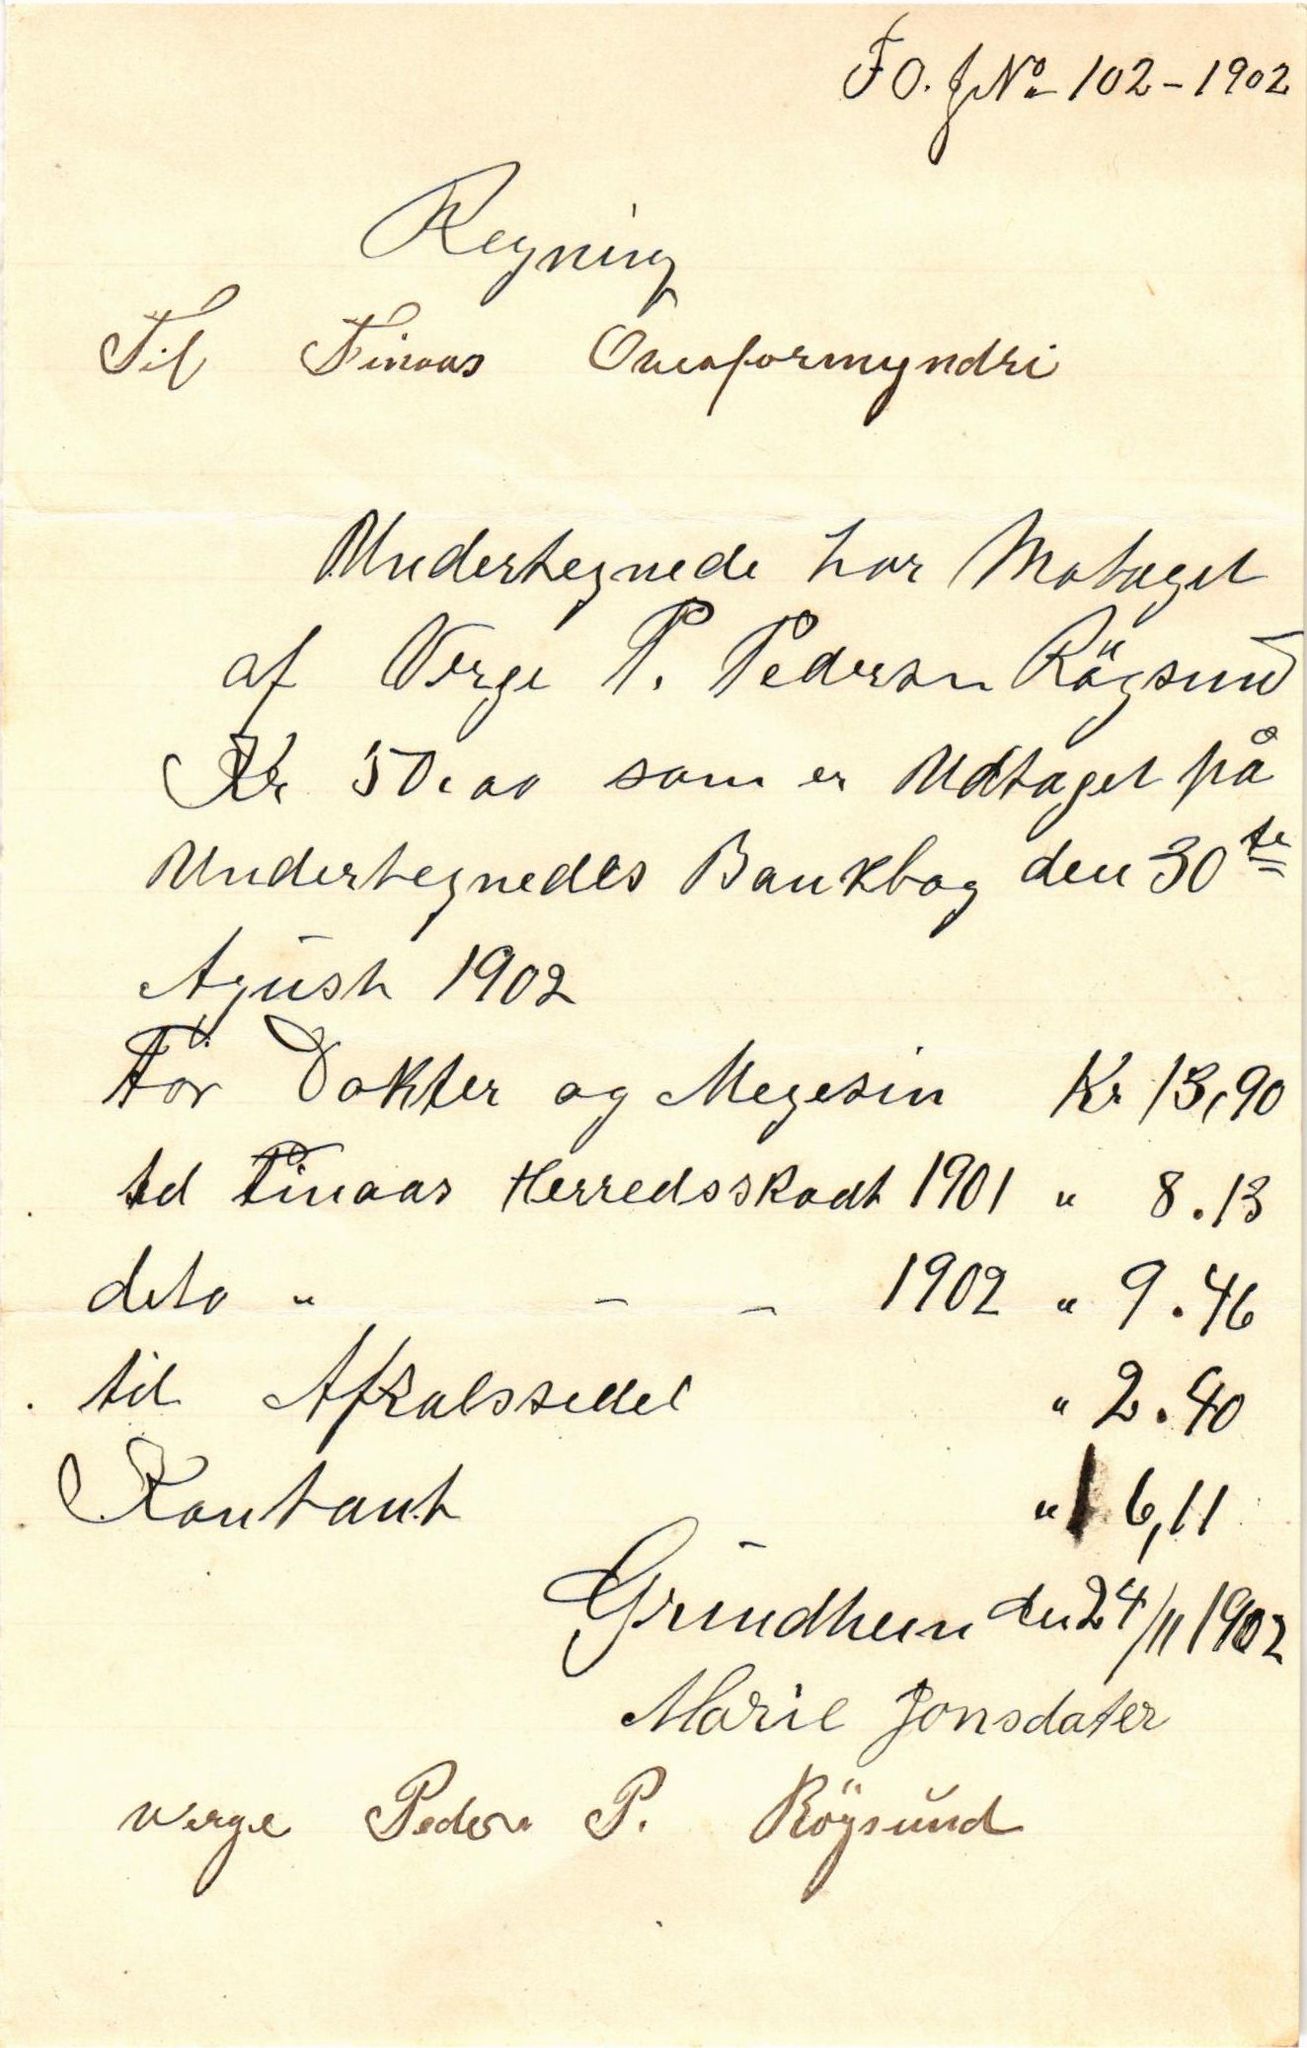 FO. J No 102-1902
Regning
Til Finaas Overformyndri
Undertegnede har Motaget
af Verge P. Pederson Rögsund
Kr 50,00 som er Udtaget på
Undertegnedes Bankbog den 30te
Agust 1902
For Dokter og Megesin Kr 13,90
til Finaas Herredsskadt 1901 " 8.13
deto " – – 1902 " 9.46
til Afkalssedel " 2.40
Kontant " 16,11
Grindheim den 24/11 1902
Marie Jonsdater
verge Peder P. Röysund